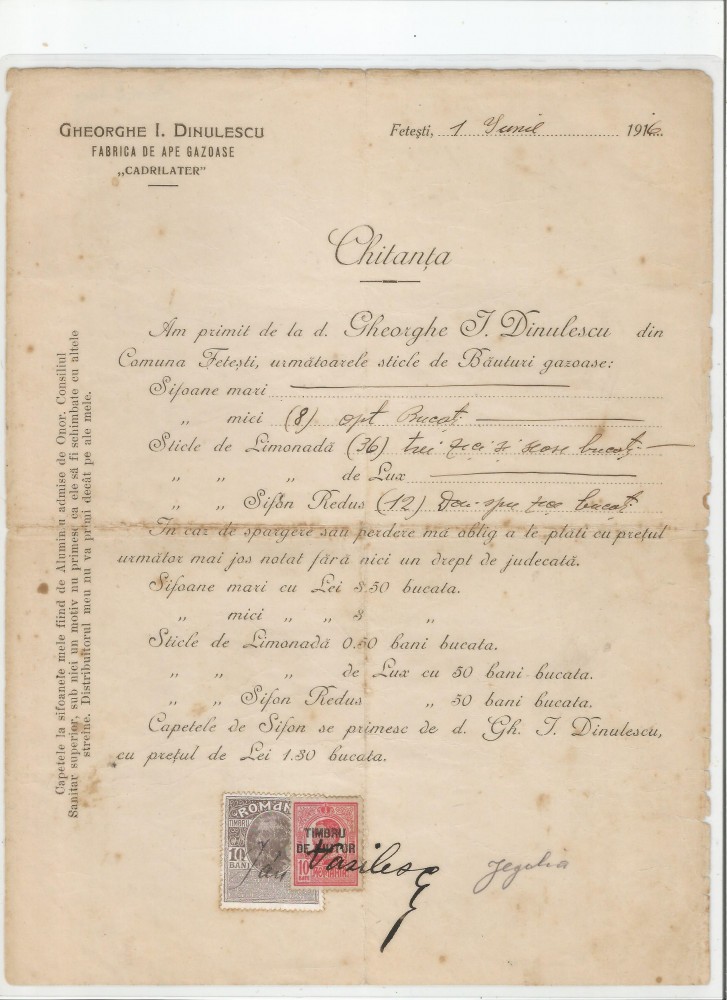 GHEORGHE I. DINULESCU
FABRICA DE APE GAZOASE
„CADRILATER”
Fetești, 1 Iunie 1916
Chitanța
Am primit de la d. Gheorghe I. Dinulescu din
Comuna Fetești, următoarele sticle de Băuturi gazoase:
Sifoane mari
„ mici (8) opt Bucăț
Sticle de Limonadă (36) trei zeci și șase bucăț
„ „ „ de Lux
„ „ Sifon Redus (12) bucăț
In caz de spargere sau perdere mă oblig a le plati cu prețul
următor mai jos notat fără nici un drept de judecată.
Sifoane mari cu Lei 3.50 bucata.
„ mici „ „ 3 „
Sticle de Limonadă 0.50 bani bucata.
„ „ „ de Lux cu 50 bani bucata.
„ „ Sifon Redus „ 50 bani bucata.
Capetele de Sifon se primesc de d. Gh. I. Dinulescu,
cu prețul de Lei 1.30 bucata.
Capetele la sifoanele mele fiind de Aluminiu admise de Onor. Consiliul
Sanitar superior, sub nici un motiv nu primesc ca ele să fi schimbate cu altele
streine. Distribuitorul meu nu va primi decât pe ale mele.
ROMÂN
TIMBRU
10
BANI
TIMBRU
DE AJUTOR
10
Vasilesc
Jegilia